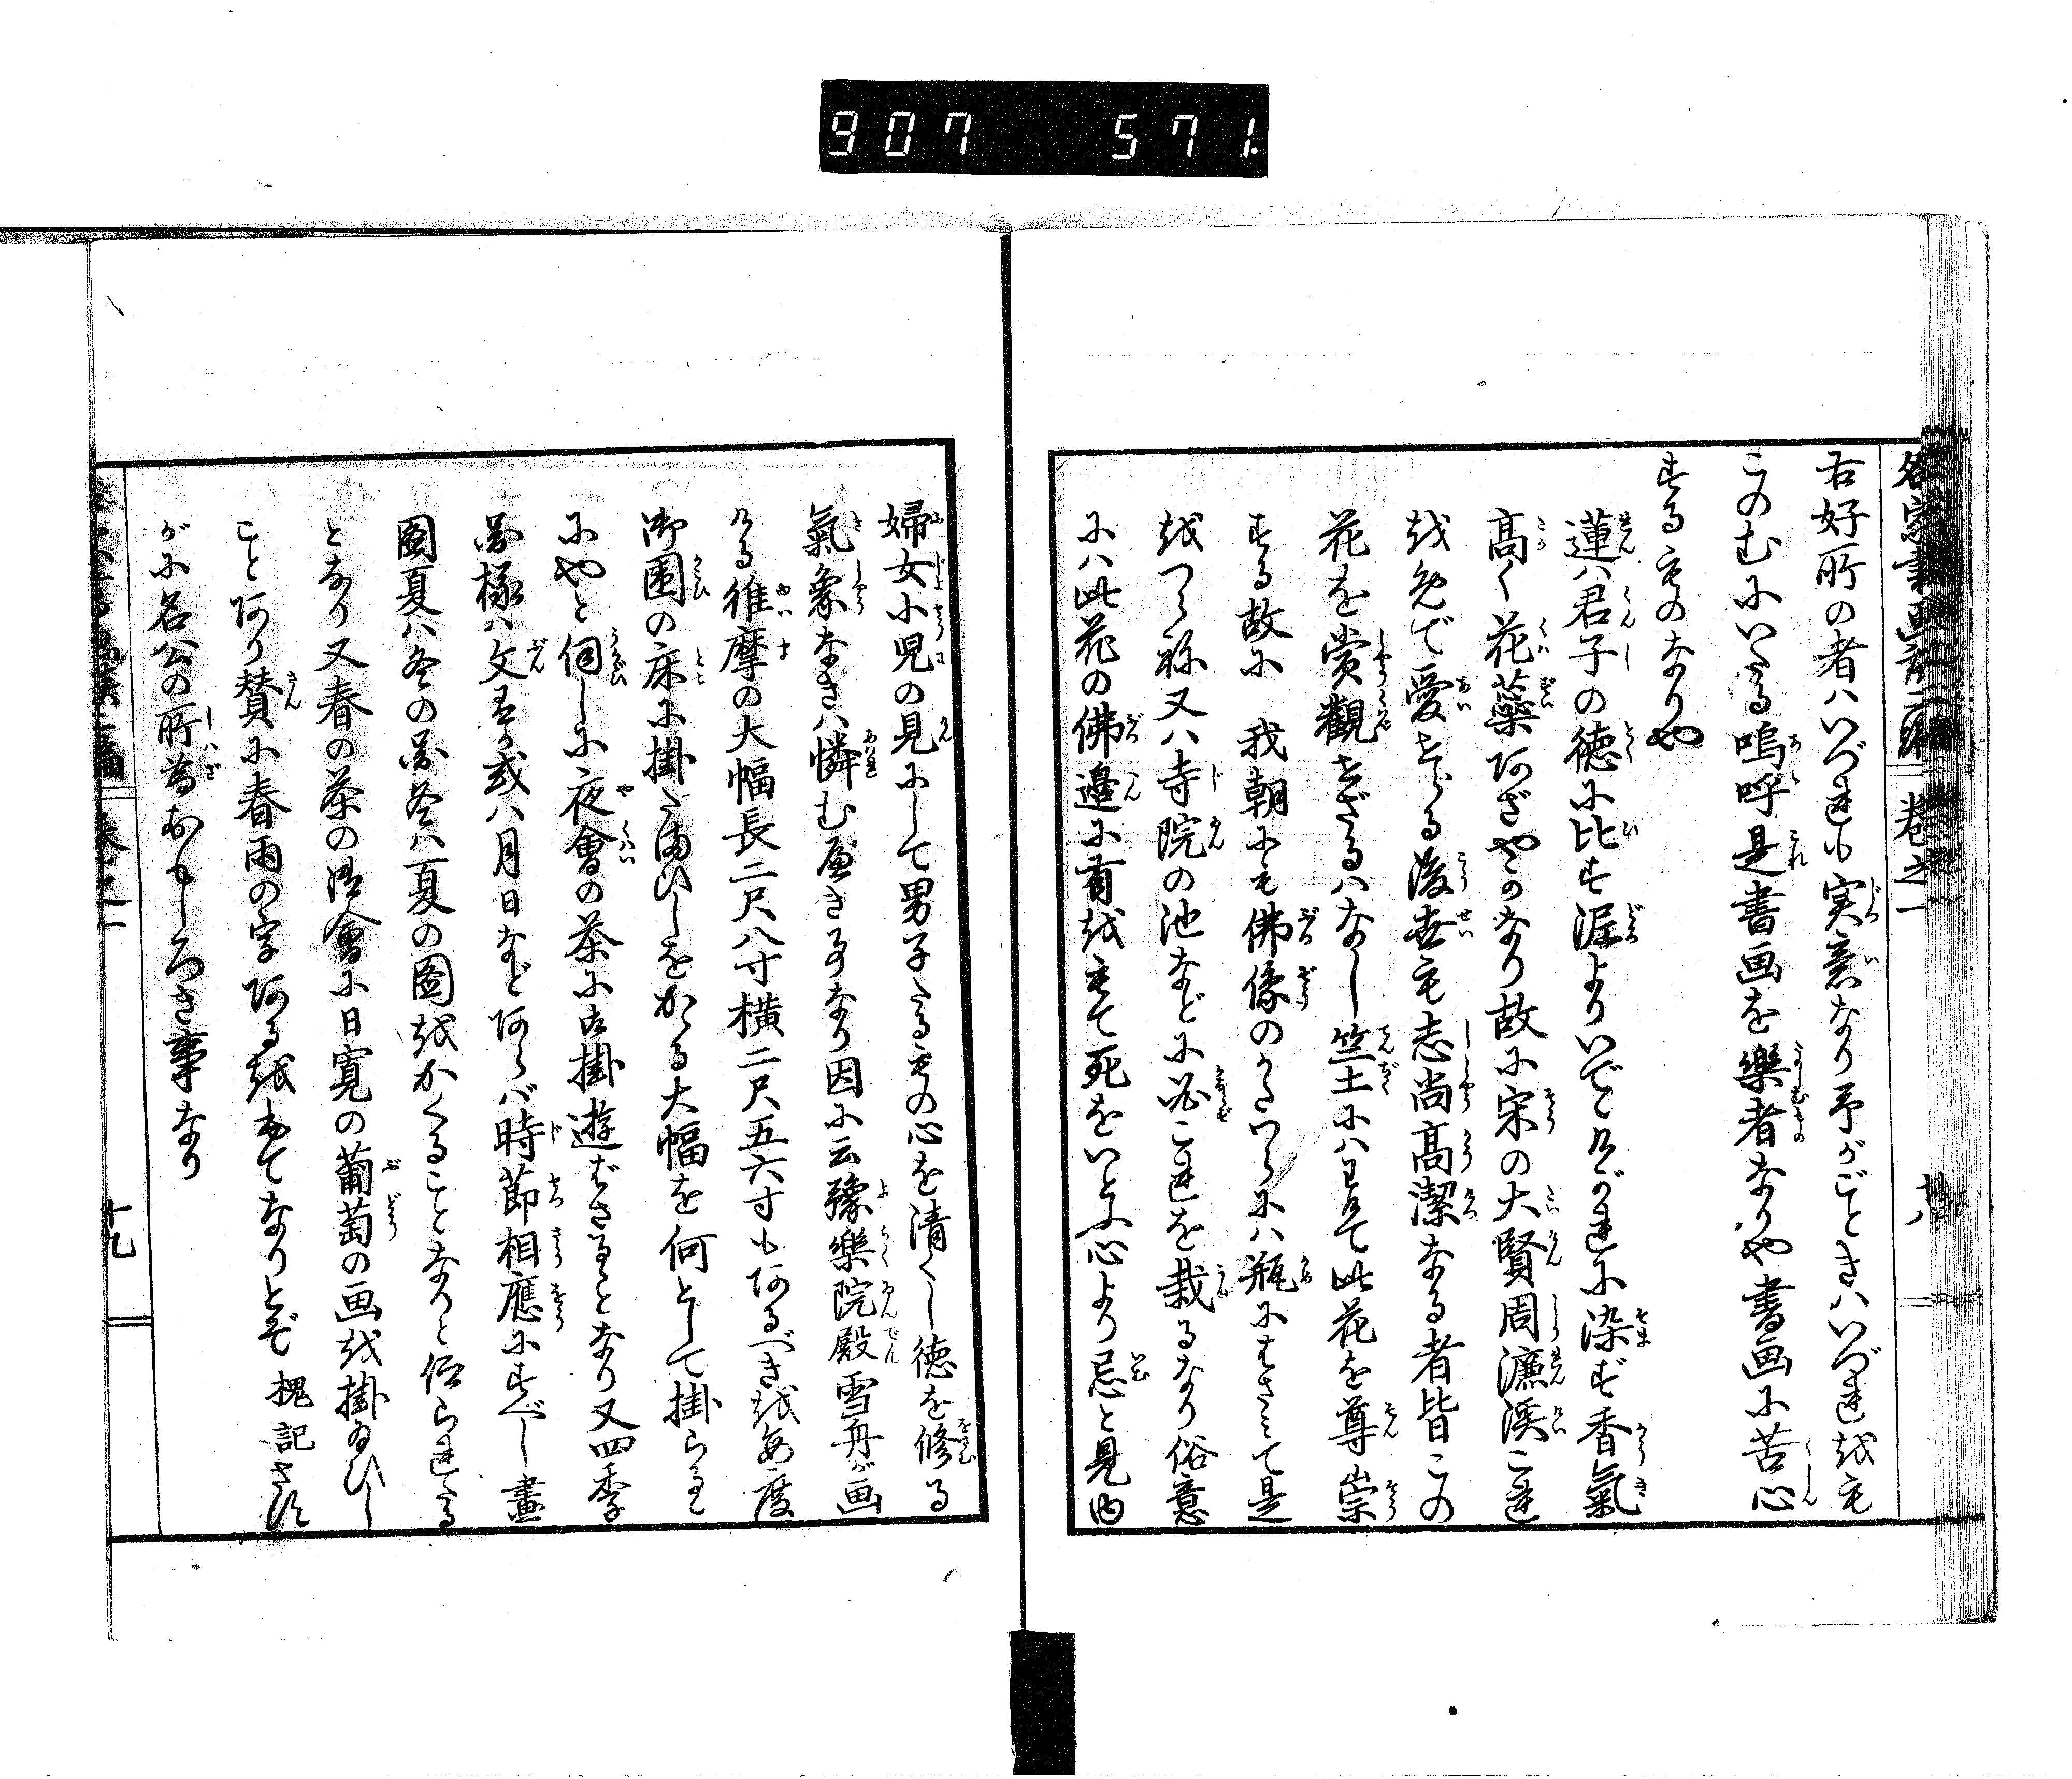 907 571
名家書画談二編 巻之一 十八
右好所の者ハいづれも実意なり予がごときハいづれ越も
このむにいたる嗚呼是書画を樂者なりや書画に苦心
するものなりや
蓮ハ君子の徳に比す泥よりいでゝけがれに染ず香氣
高く花蘂あざやかなり故に宋の大賢周濂溪これ
越めで愛せる後世も志尚高潔なる者皆この
花を賞觀せざるハなし竺土にハわけて此花を尊崇
する故に 我朝にも佛像のかたハらにハ瓶にもさして是
越つらね又ハ寺院の池などに必これを栽るなり俗意
にハ此花の佛邉に有越もて死をいとふ心より忌と見ゆ
婦女小児の見にして男子たるもの心を清くし徳を修る
氣象なきハ憐む便き事なり因に云豫樂院殿雪舟が画
ける維摩の大幅長二尺八寸横二尺五六寸もあるべき越毎度
御圍の床に掛たまひしをかゝる大幅を何として掛らるゝ
にやと伺しに夜會の茶に占掛遊ばさるゝとなり又四季
の極ハ文字或ハ月日などあらバ時節相應にすべし畫
圖夏ハ冬の圖冬ハ夏の圖越かくることなりと仰られたる
となり又春の茶の御會に日寛の葡萄の画越掛ゐひし
ことあり賛に春雨の字ある越もてなりとぞ 槐記 さす
がに名公の所為おもしろき事なり
巻之一 十九